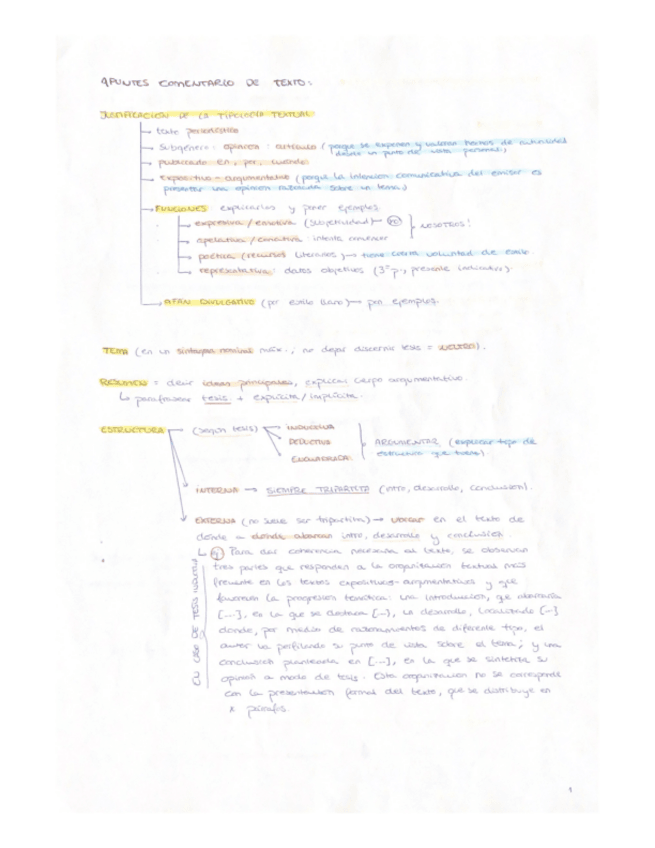 APUNTES COMENTARIO DE TEXTO:
JUSTIFICACIÓN DE LA TIPOLOGÍA TEXTUAL
→ texto periodístico
→ Subgénero: opinión: artículo (porque se exponen y valoran hechos de actualidad
desde un punto de vista personal)
→ publicado en, por, cuando
→ expositivo-argumentativo (porque la intención comunicativa del emisor es
presentar una opinión razonada sobre un tema)
→ FUNCIONES explicarlas y poner ejemplos
→ expresiva/emotiva (subjetividad)
→ apelativa/conativa: intenta convencer
NOSOTROS!
→ poética (recursos literarios) → tiene cierta voluntad de estilo.
→ representativa: datos objetivos (3ª p., presente indicativo).
→ AFÁN DIVULGATIVO (por estilo llano) → pon ejemplos.
TEMA (en un sintagma nominal máx.; no dejar discernir tesis = NEUTRO).
RESUMEN = decir ideas principales, explicar cuerpo argumentativo.
↳ parafrasear tesis + explícita/implícita.
ESTRUCTURA → (según tesis)
INDUCTIVA
DEDUCTIVA
ENCUADRADA
ARGUMENTAR (explicar tipo de
estructura que tiene).
→ INTERNA → SIEMPRE TRIPARTITA (intro, desarrollo, conclusión).
→ EXTERNA (no suele ser tripartita) → en el texto de
dónde a dónde abarcan intro, desarrollo y conclusión.
↳ ej Para dar coherencia necesaria al texto, se observan
tres partes que responden a la organización textual más
frecuente en los textos expositivos-argumentativos y que
favorecen la progresión temática: una introducción, que abarcaría
[...], en la que se destaca [...], un desarrollo, localizado [...]
donde, por medio de razonamientos de diferente tipo, el
autor va perfilando su punto de vista sobre el tema; y una
conclusión planteada en [...], en la que se sintetiza su
opinión a modo de tesis. Esta organización no se corresponde
con la presentación formal del texto, que se distribuye en
x párrafos.
EN CASO DE TESIS INDUCTIVA
1